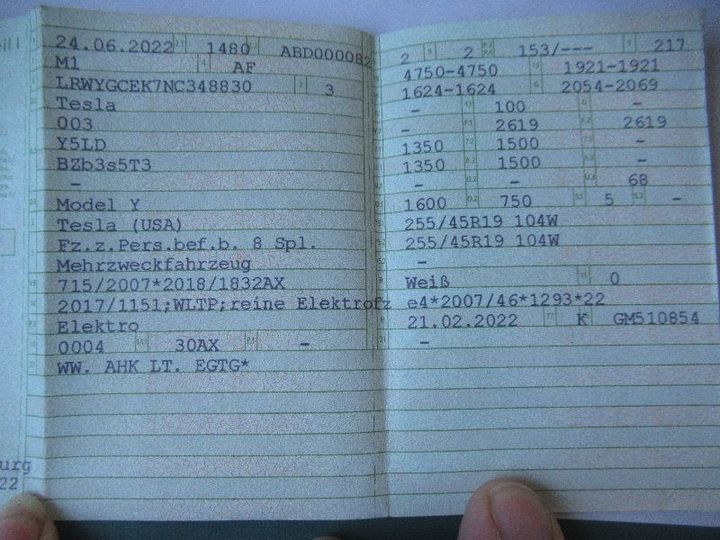 24.06.2022 1480 ABD000082
M1 AF
LRWYGCEK7NC348830 3
Tesla
003
Y5LD
BZb3s5T3
-
Model Y
Tesla (USA)
Fz.z.Pers.bef.b. 8 Spl.
Mehrzweckfahrzeug
715/2007*2018/1832AX
2017/1151;WLTP;reine Elektrofz
Elektro
0004 30AX -
WW. AHK LT. EGTG*
urg
22
2 2 153/--- 217
4750-4750 1921-1921
1624-1624 2054-2069
- 100 -
- 2619 2619
1350 1500 -
1350 1500 -
- - 68
1600 750 5 -
255/45R19 104W
255/45R19 104W
-
Weiß 0
e4*2007/46*1293*22
21.02.2022 K GM510854
-